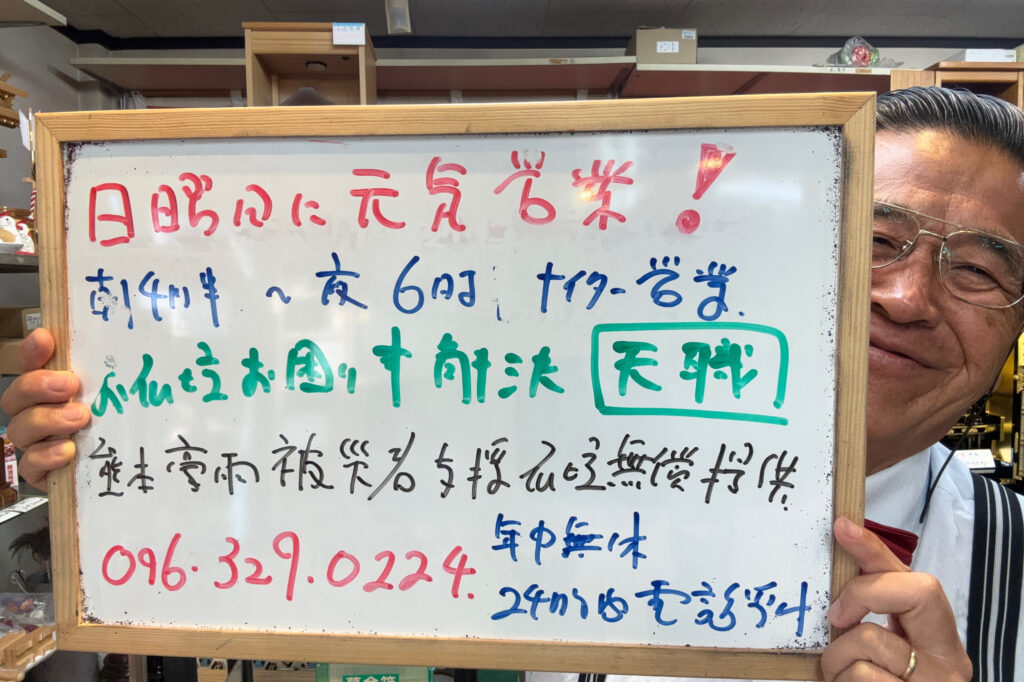 日曜日に元気営業!
朝4時半 ～夜6時 ナイター営業.
お仏壇お困り事解決 天職
熊本豪雨被災者支援仏壇無償提供.
096.329.0224.
年中無休
24時間電話受付
募金箱